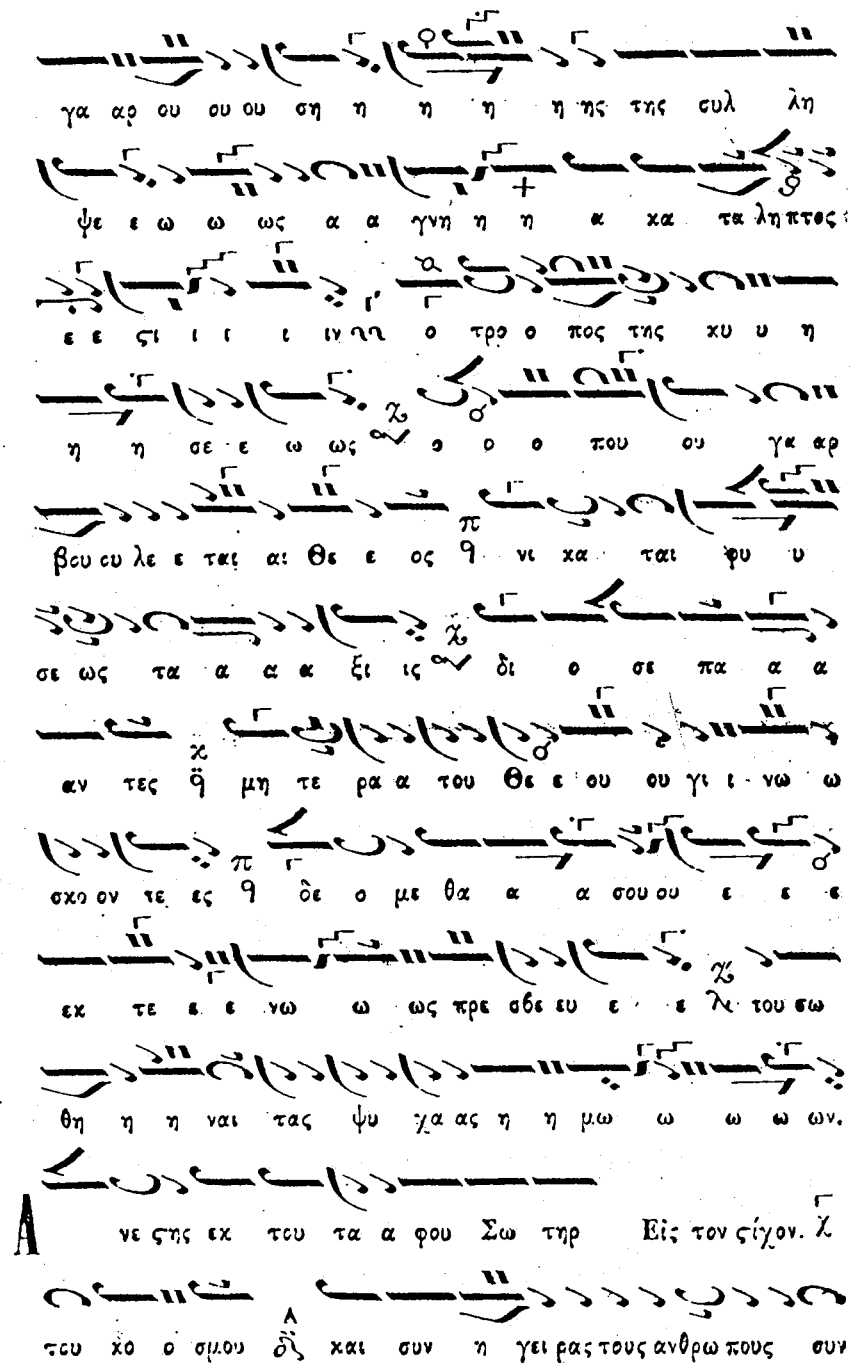 γα αρ ου ου ου ση η η η η ης της συλ λη
ψε ε ω ω ως α α γνη η η α κα τα ληπτος
ε ε ςι ι ι ι ιν ο τρο ο πος της κυ υ η
η η σε ε ω ως ο ο ο που ου γα αρ
βου ου λε ε ται αι Θε ε ος π νι κα ται φυ υ
σε ως τα α α α ξι ις δι ο σε πα α α
αν τες μη τε ρα α του Θε ε ου ου γι ι νω ω
σκο ον τε ες π δε ο με θα α α σου ου ε ε ε
εκ τε ε ε νω ω ως πρε σβε ευ ε ε του σω
θη η η ναι τας ψυ χα ας η η μω ω ω ω ων.
Α νε ςης εκ του τα α φου Σω τηρ Εἰς τον ςίχον. χ
του κο ο σμου και συν η γει ρας τους ανθρω πους συν